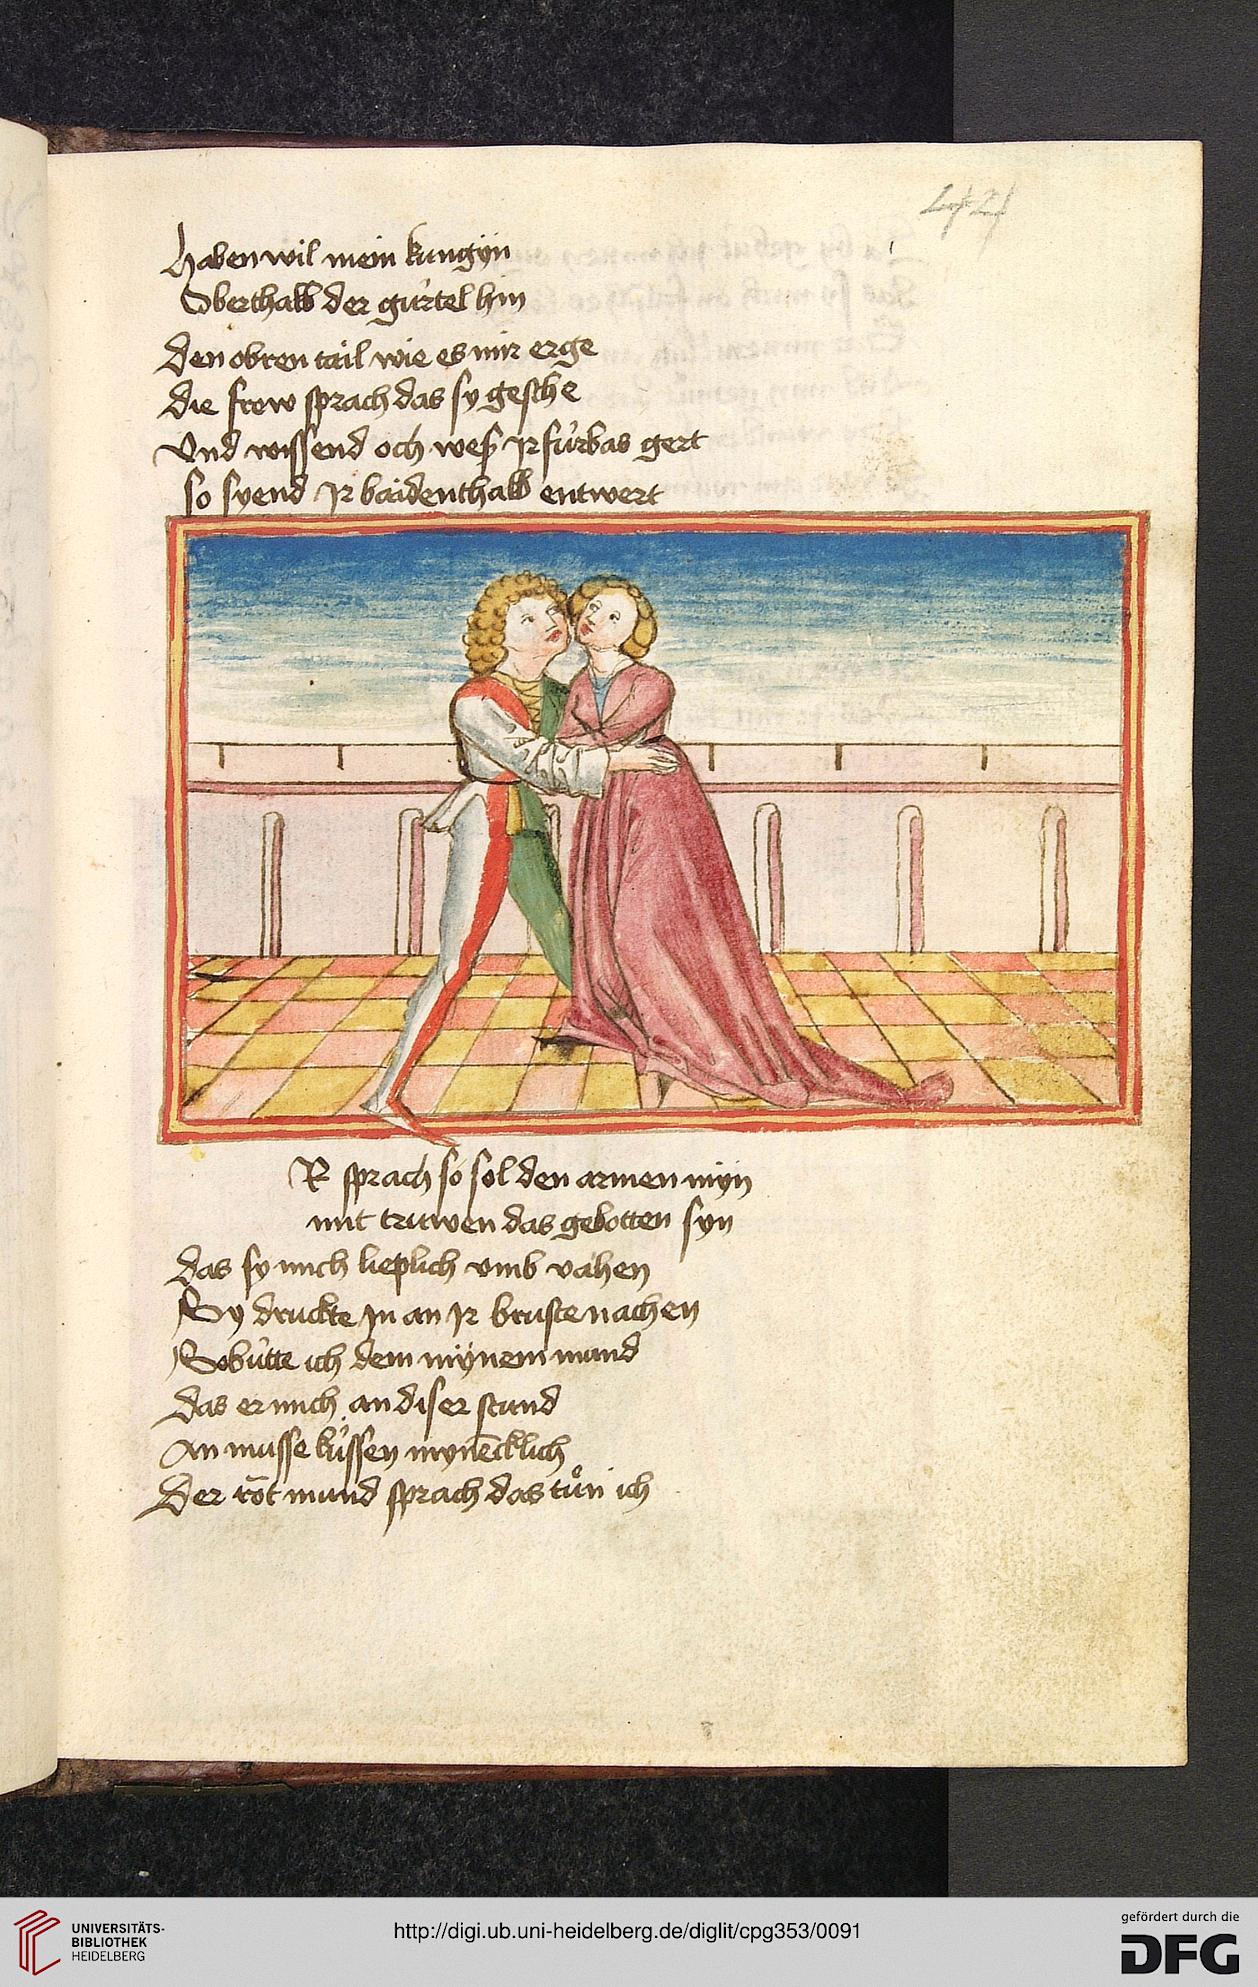 42
haben wil mein kungÿn
Oberthalb der gúrtel hin
Den obren tail wie es mir erge
Die frow sprach das sy gesche
Vnd wissend och weß Ir fúrbas gert
so syend Ir baidenthalb entwert
R sprach so sol den armen mÿn
mit truwen das gebotten syn
Das sy mich lieplich vmb vahen
Sy druckte In an Ir bruste nachen
So bútte ich dem mÿnem mund
Das er mich an diser stund
An musse kússen mynēcklich
Der rōt mund sprach das tuͦn ich
UNIVERSITÄTS-
BIBLIOTHEK
HEIDELBERG
http://digi.ub.uni-heidelberg.de/diglit/cpg353/0091
gefördert durch die
DFG